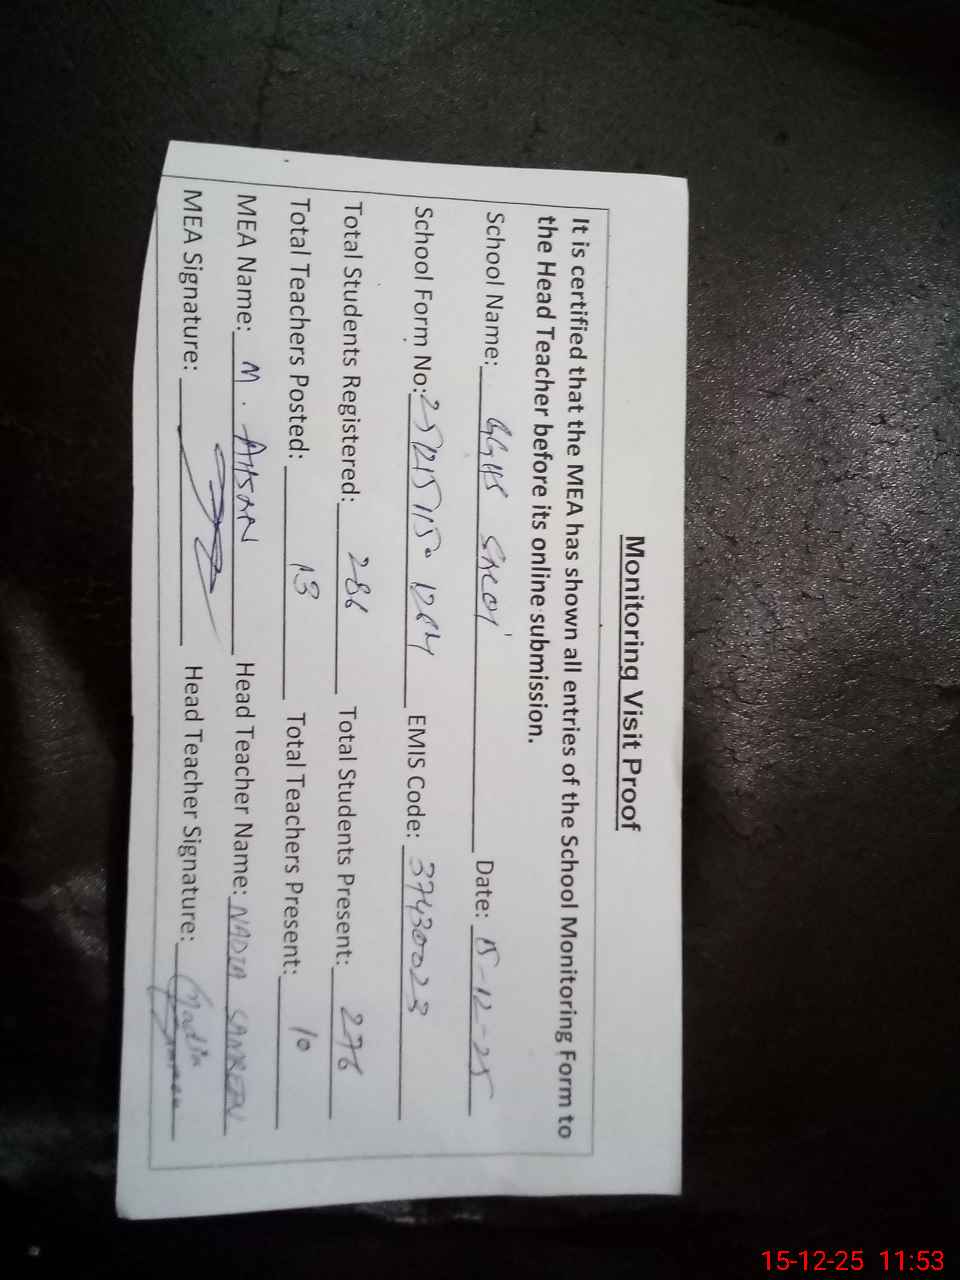 Monitoring Visit Proof
It is certified that the MEA has shown all entries of the School Monitoring Form to
the Head Teacher before its online submission.
School Name: GGHS Date: 15-12-25
School Form No: EMIS Code: 37430023
Total Students Registered: 286 Total Students Present: 276
Total Teachers Posted: 13 Total Teachers Present: 10
MEA Name: M. AHSAN Head Teacher Name: NADIA
MEA Signature: Head Teacher Signature: Nadia
15-12-25 11:53